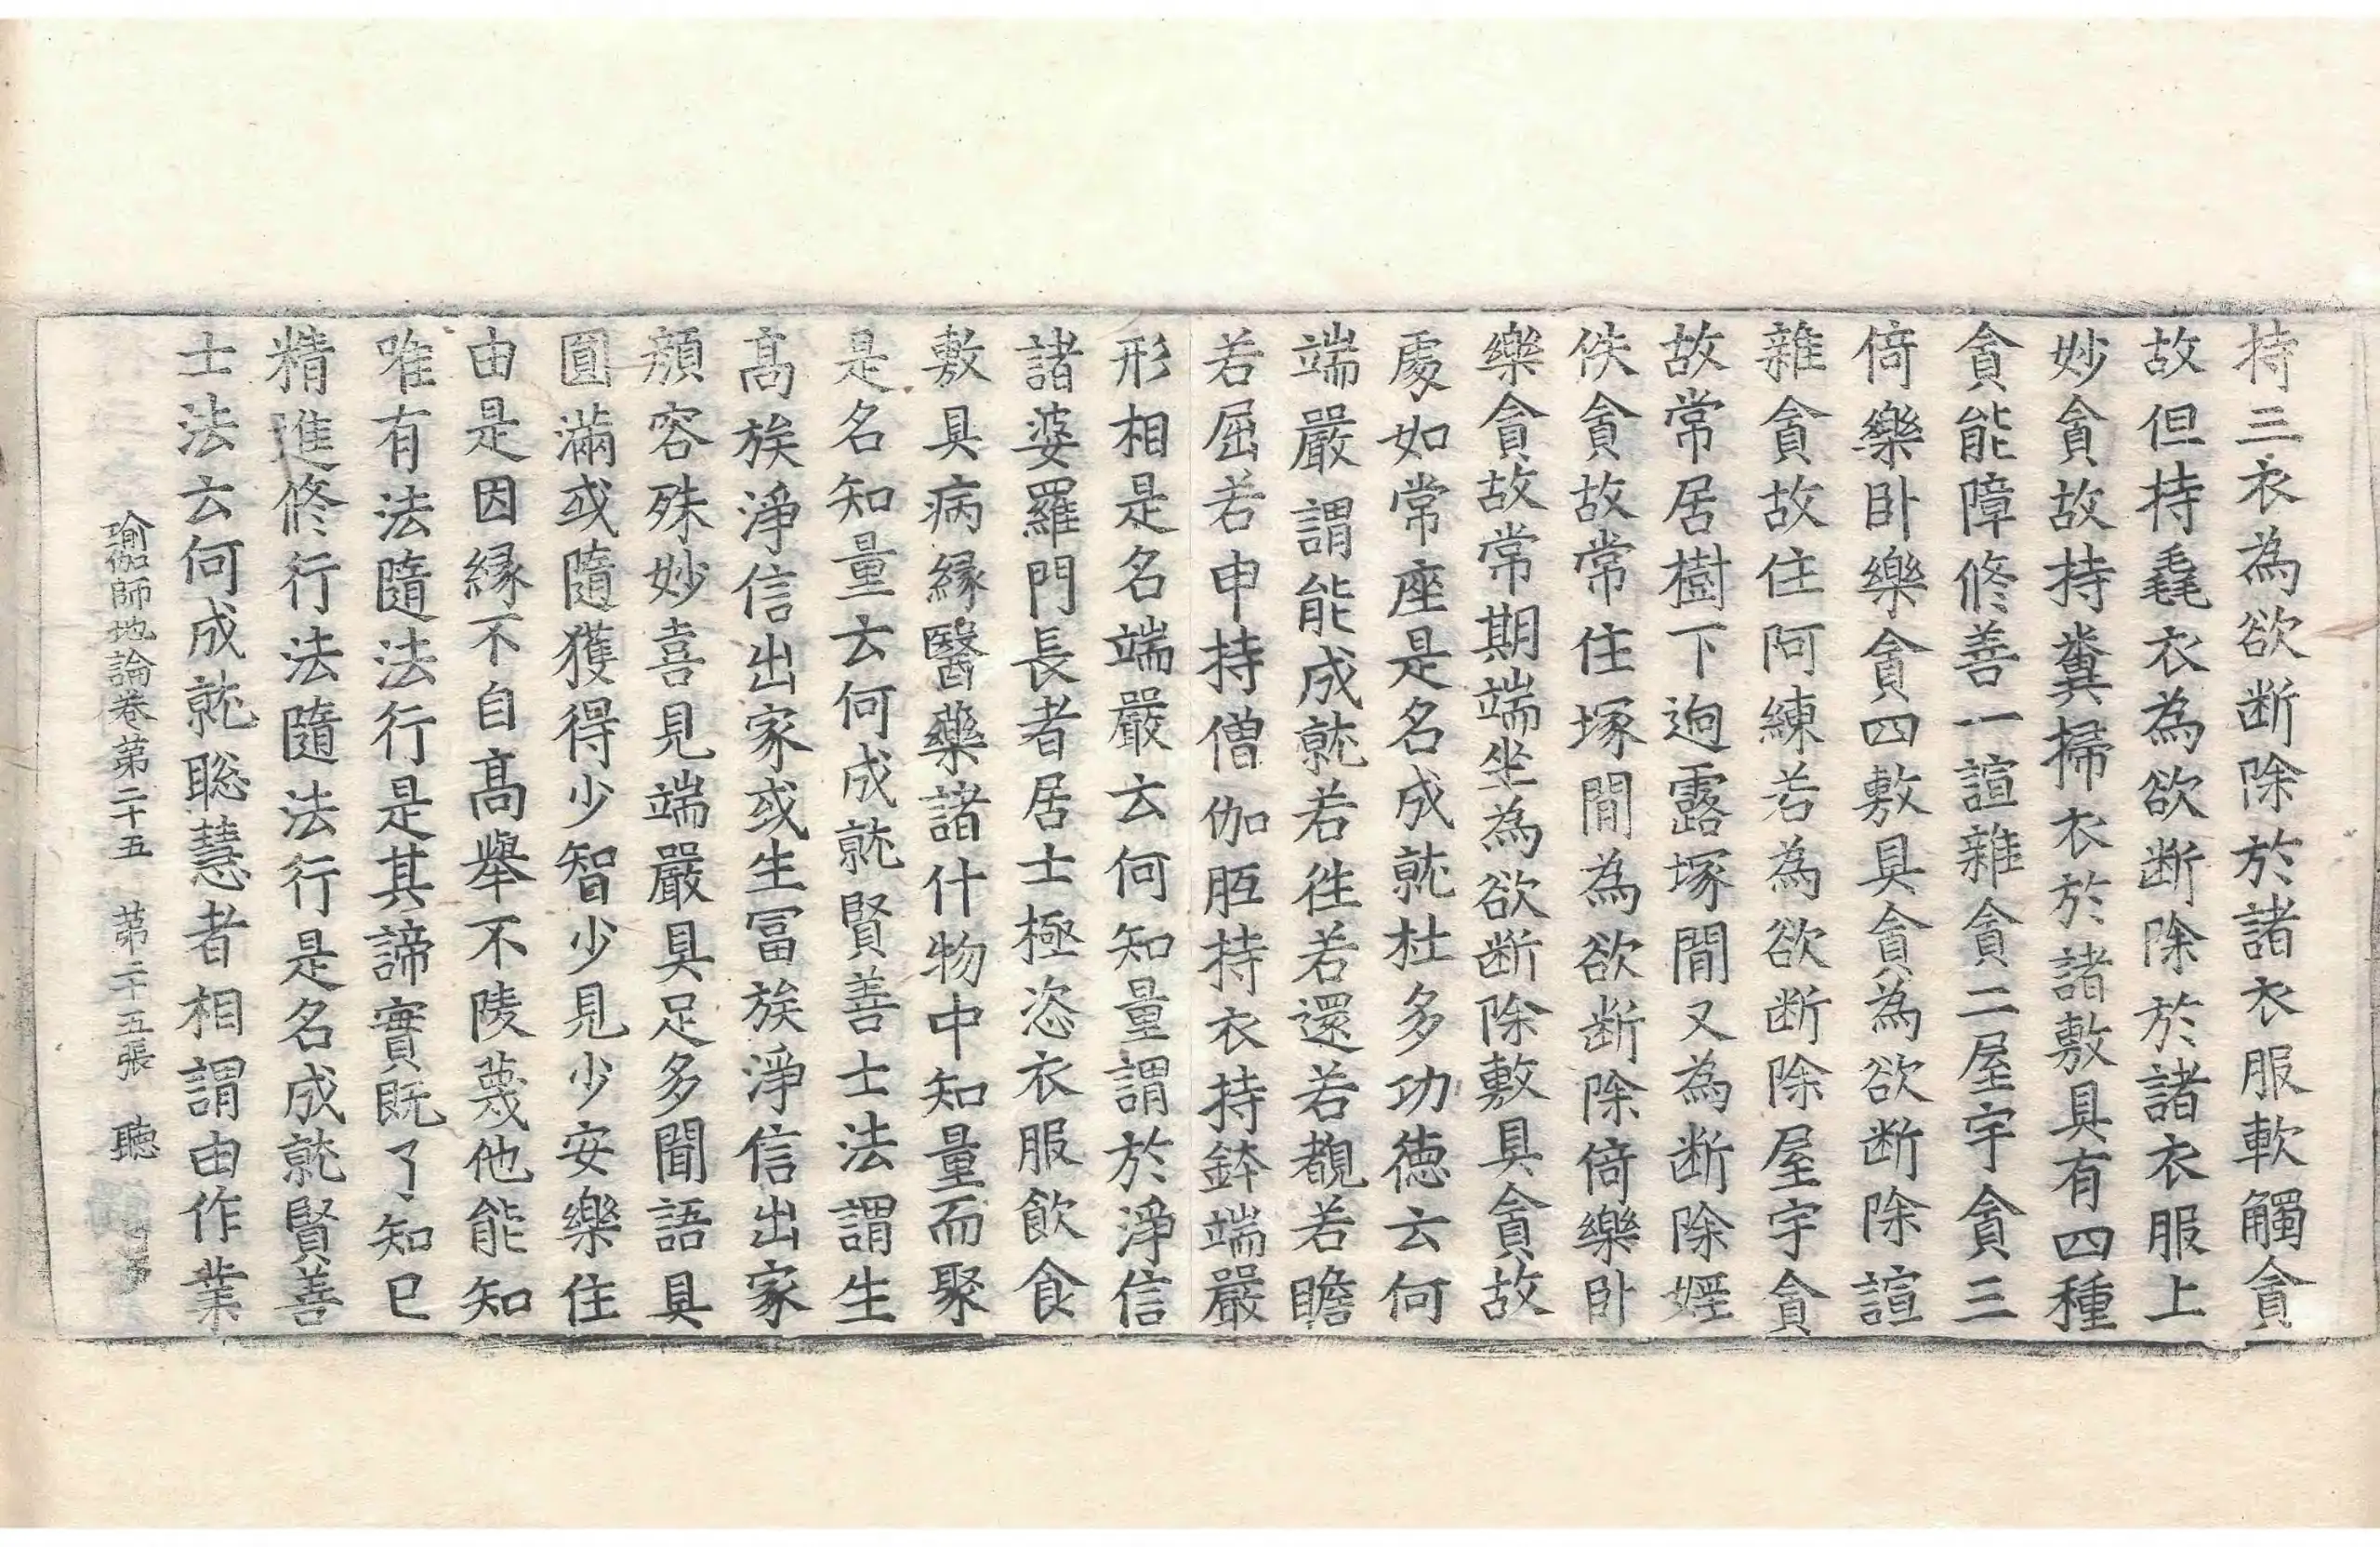 持三衣為欲断除於諸衣服軟觸貪
故但持毳衣為欲断除於諸衣服上
妙貪故持糞掃衣於諸敷具有四種
貪能障修善一諠雜貪二屋宇貪三
倚樂卧樂貪四敷具貪為欲断除諠
雜貪故住阿練若為欲断除屋宇貪
故常居樹下逈露塚間又為断除婬
佚貪故常住塚間為欲断除倚樂卧
樂貪故常期端坐為欲断除敷具貪故
處如常座是名成就杜多功德云何
端嚴謂能成就若徃若還若覩若瞻
若屈若申持僧伽胝持衣持鉢端嚴
形相是名端嚴云何知量謂於淨信
諸婆羅門長者居士極恣衣服飲食
敷具病縁醫藥諸什物中知量而聚
是名知量云何成就賢善士法謂生
髙族淨信出家或生冨族淨信出家
顔容殊妙喜見端嚴具足多聞語具
圓滿或隨獲得少智少見少安樂住
由是因縁不自髙舉不陵蔑他能知
唯有法隨法行是其諦實既了知已
精進修行法隨法行是名成就賢善
士法云何成就聡慧者相謂由作業
瑜伽師地論卷第二十五　第二十五張　聽